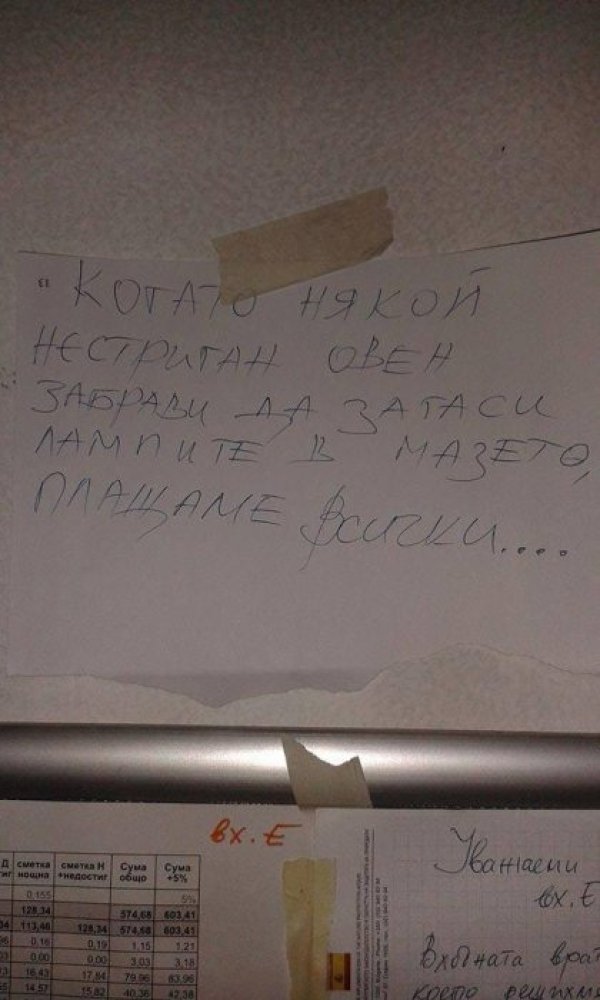 13
КОГАТО НЯКОЙ
НЕСТРИГАН ОВЕН
ЗАБРАВИ ДА ЗАГАСИ
ЛАМПИТЕ В МАЗЕТО,
ПЛАЩАМЕ ВСИЧКИ....
вх. Е
Д сметка нощна сметка Н +недостиг Сума общо Сума +5%
0,155 5%
128,34 574,68 603,41
113,46 128,34 574,68 603,41
0,16 0,19 1,15 1,21
0,00 0,00 3,03 3,18
16,43 17,84 79,96 83,96
14,57 15,82 40,36 42,38
Уважаеми
вх. Е
Входната
което решихм